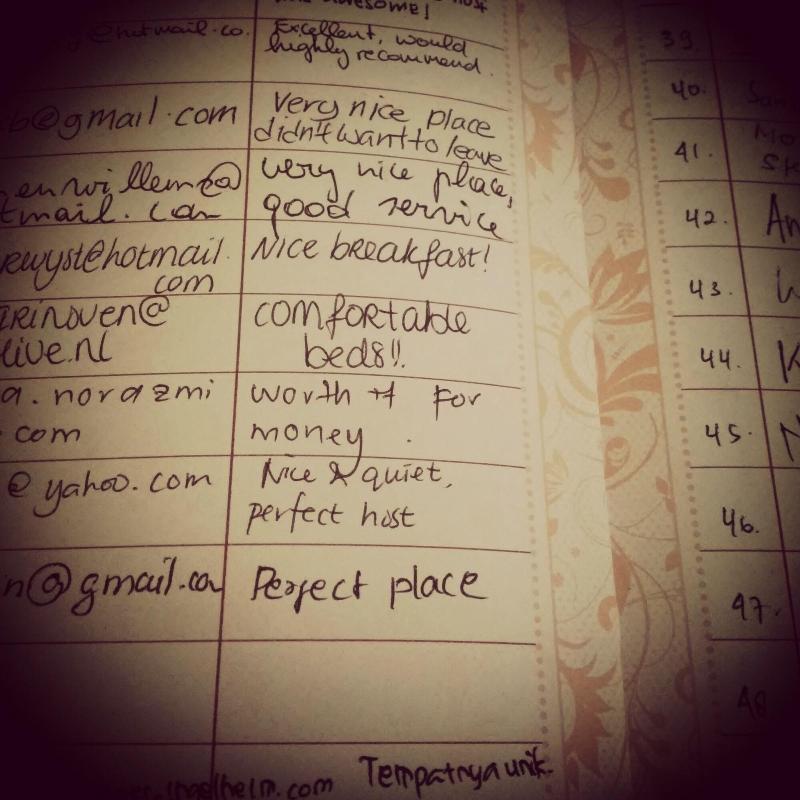 awesome!
@hotmail.co.
Excellent, would
highly recommend.
b@gmail.com
Very nice place
didn't want to leave
enwillem@
tmail.com
very nice place,
good service
rewyst@hotmail.
com
Nice breakfast!
arinoven@
live.nl
comfortable
beds!!
a.norazmi
com
worth it for
money.
@yahoo.com
Nice & quiet,
perfect host
n@gmail.co
Perfect place
helm.com
Tempatnya unik.
39.
40.
41.
42. An
43.
44. K
45. N
46.
47.
48